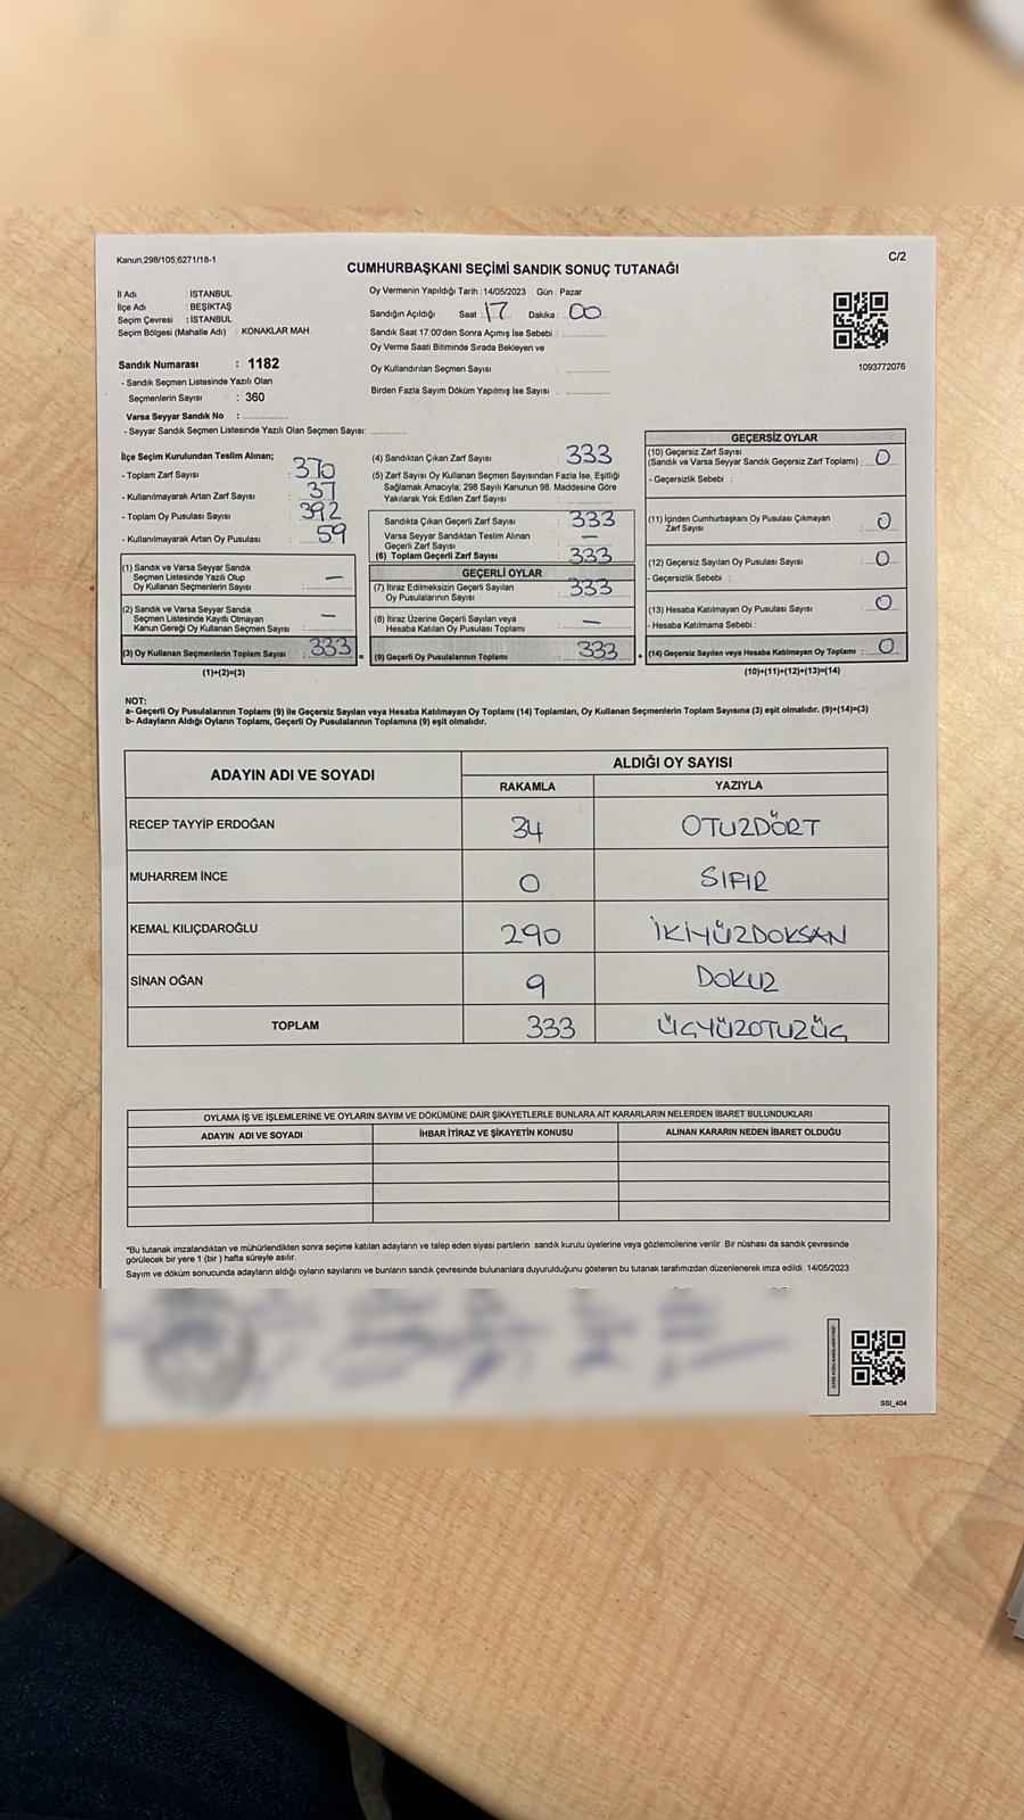 Kanun,298/105,6271/18-1
C/2
CUMHURBAŞKANI SEÇİMİ SANDIK SONUÇ TUTANAĞI
İl Adı : İSTANBUL
İlçe Adı : BEŞİKTAŞ
Seçim Çevresi : İSTANBUL
Seçim Bölgesi (Mahalle Adı) : KONAKLAR MAH
Sandık Numarası : 1182
- Sandık Seçmen Listesinde Yazılı Olan
Seçmenlerin Sayısı : 360
Varsa Seyyar Sandık No :
- Seyyar Sandık Seçmen Listesinde Yazılı Olan Seçmen Sayısı:
Oy Vermenin Yapıldığı Tarih : 14/05/2023 Gün : Pazar
Sandığın Açıldığı Saat : 17 Dakika : 00
Sandık Saat 17:00'den Sonra Açımış İse Sebebi :
Oy Verme Saati Bitiminde Sırada Bekleyen ve
Oy Kullandırılan Seçmen Sayısı
Birden Fazla Sayım Döküm Yapılmış İse Sayısı :
1093772076
İlçe Seçim Kurulundan Teslim Alınan;
- Toplam Zarf Sayısı : 370
- Kullanılmayarak Artan Zarf Sayısı : 37
- Toplam Oy Pusulası Sayısı : 392
- Kullanılmayarak Artan Oy Pusulası : 59
(1) Sandık ve Varsa Seyyar Sandık
Seçmen Listesinde Yazılı Olup
Oy Kullanan Seçmenlerin Sayısı : —
(2) Sandık ve Varsa Seyyar Sandık
Seçmen Listesinde Kaydı Olmayan
Kanun Gereği Oy Kullanan Seçmen Sayısı : —
(3) Oy Kullanan Seçmenlerin Toplam Sayısı : 333
(1)+(2)=(3)
(4) Sandıktan Çıkan Zarf Sayısı : 333
(5) Zarf Sayısı Oy Kullanan Seçmen Sayısından Fazla İse, Eşitliği
Sağlamak Amacıyla; 298 Sayılı Kanunun 98. Maddesine Göre
Yakılarak Yok Edilen Zarf Sayısı
Sandıkta Çıkan Geçerli Zarf Sayısı : 333
Varsa Seyyar Sandıktan Teslim Alınan
Geçerli Zarf Sayısı : —
(6) Toplam Geçerli Zarf Sayısı : 333
GEÇERLİ OYLAR
(7) İtiraz Edilmeksizin Geçerli Sayılan
Oy Pusulalarının Sayısı : 333
(8) İtiraz Üzerine Geçerli Sayılan veya
Hesaba Katılan Oy Pusulası Toplamı : —
(9) Geçerli Oy Pusulalarının Toplamı : 333
GEÇERSİZ OYLAR
(10) Geçersiz Zarf Sayısı
(Sandık ve Varsa Seyyar Sandık Geçersiz Zarf Toplamı) : 0
- Geçersizlik Sebebi :
(11) İçinden Cumhurbaşkanı Oy Pusulası Çıkmayan
Zarf Sayısı : 0
(12) Geçersiz Sayılan Oy Pusulası Sayısı : 0
- Geçersizlik Sebebi :
(13) Hesaba Katılmayan Oy Pusulası Sayısı : 0
- Hesaba Katılmama Sebebi :
(14) Geçersiz Sayılan veya Hesaba Katılmayan Oy Toplamı : 0
(10)+(11)+(12)+(13)=(14)
NOT:
a- Geçerli Oy Pusulalarının Toplamı (9) ile Geçersiz Sayılan veya Hesaba Katılmayan Oy Toplamı (14) Toplamları, Oy Kullanan Seçmenlerin Toplam Sayısına (3) eşit olmalıdır. (9)+(14)=(3)
b- Adayların Aldığı Oyların Toplamı, Geçerli Oy Pusulalarının Toplamına (9) eşit olmalıdır.
ADAYIN ADI VE SOYADI ALDIĞI OY SAYISI
RAKAMLA YAZIYLA
RECEP TAYYİP ERDOĞAN 34 OTUZDÖRT
MUHARREM İNCE 0 SIFIR
KEMAL KILIÇDAROĞLU 290 İKİYÜZDOKSAN
SİNAN OĞAN 9 DOKUZ
TOPLAM 333 ÜÇYÜZOTUZÜÇ
OYLAMA İŞ VE İŞLEMLERİNE VE OYLARIN SAYIM VE DÖKÜMÜNE DAİR ŞİKAYETLERLE BUNLARA AİT KARARLARIN NELERDEN İBARET BULUNDUKLARI
ADAYIN ADI VE SOYADI İHBAR İTİRAZ VE ŞİKAYETİN KONUSU ALINAN KARARIN NEDEN İBARET OLDUĞU
*Bu tutanak imzalandıktan ve mühürlendikten sonra seçime katılan adayların ve talep eden siyasi partilerin sandık kurulu üyelerine veya gözlemcilerine verilir. Bir nüshası da sandık çevresinde
görülecek bir yere 1 (bir) hafta süreyle asılır.
Sayım ve döküm sonucunda adayların aldığı oyların sayılarını ve bunların sandık çevresinde bulunanlara duyurulduğunu gösteren bu tutanak tarafımızdan düzenlenerek imza edildi. 14/05/2023
SSI_404